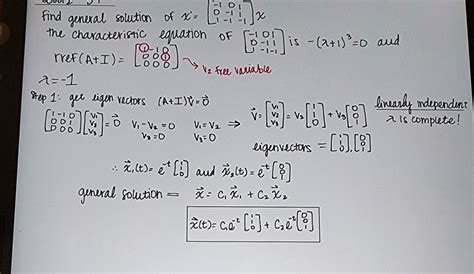 Find general solution of x⃗' = [-1 0 1; 0 -1 1; 1 -1 -1] x⃗
the characteristic equation of [-1 0 1; 0 -1 1; 1 -1 -1] is -(λ+1)³=0 and
rref(A+I) = [1 -1 0; 0 0 1; 0 0 0] → v₂ free variable
λ=-1
Step 1: get eigen vectors (A+I)v⃗=0⃗
[1 -1 0; 0 0 1; 0 0 0] [v₁; v₂; v₃] = 0⃗ v₁-v₂=0 v₃=0 v₁=v₂ v₃=0 ⇒ v⃗ = [v₁; v₂; v₃] = v₂[1; 1; 0] + v₃[0; 0; 1] linearly independent
λ is complete!
eigenvectors = [1; 1; 0], [0; 0; 1]
∴ x⃗₁(t) = e⁻ᵗ[1; 1; 0] and x⃗₂(t) = e⁻ᵗ[0; 0; 1]
general solution = x⃗ = C₁x⃗₁ + C₂x⃗₂
x⃗(t) = C₁e⁻ᵗ[1; 1; 0] + C₂e⁻ᵗ[0; 0; 1]